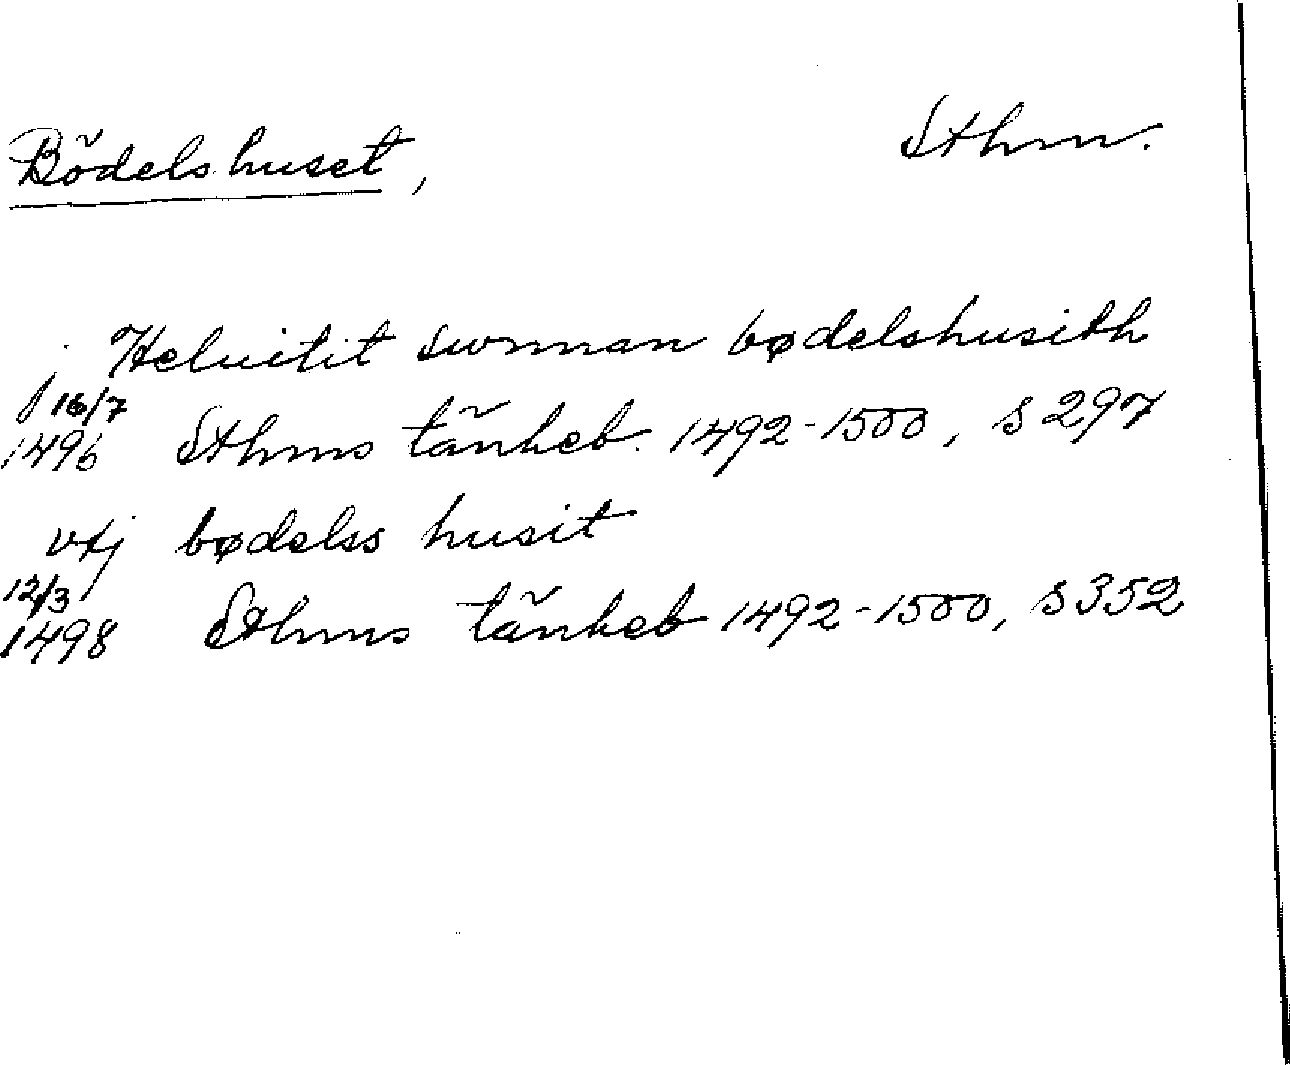 Bödelshuset, Sthm.
j Heluitit swnnan bødelshusith
16/7
1496 Sthms tänkeb. 1492-1500, s 297
vtj bødelss husit
12/3
1498 Sthms tänkeb 1492-1500, s 352